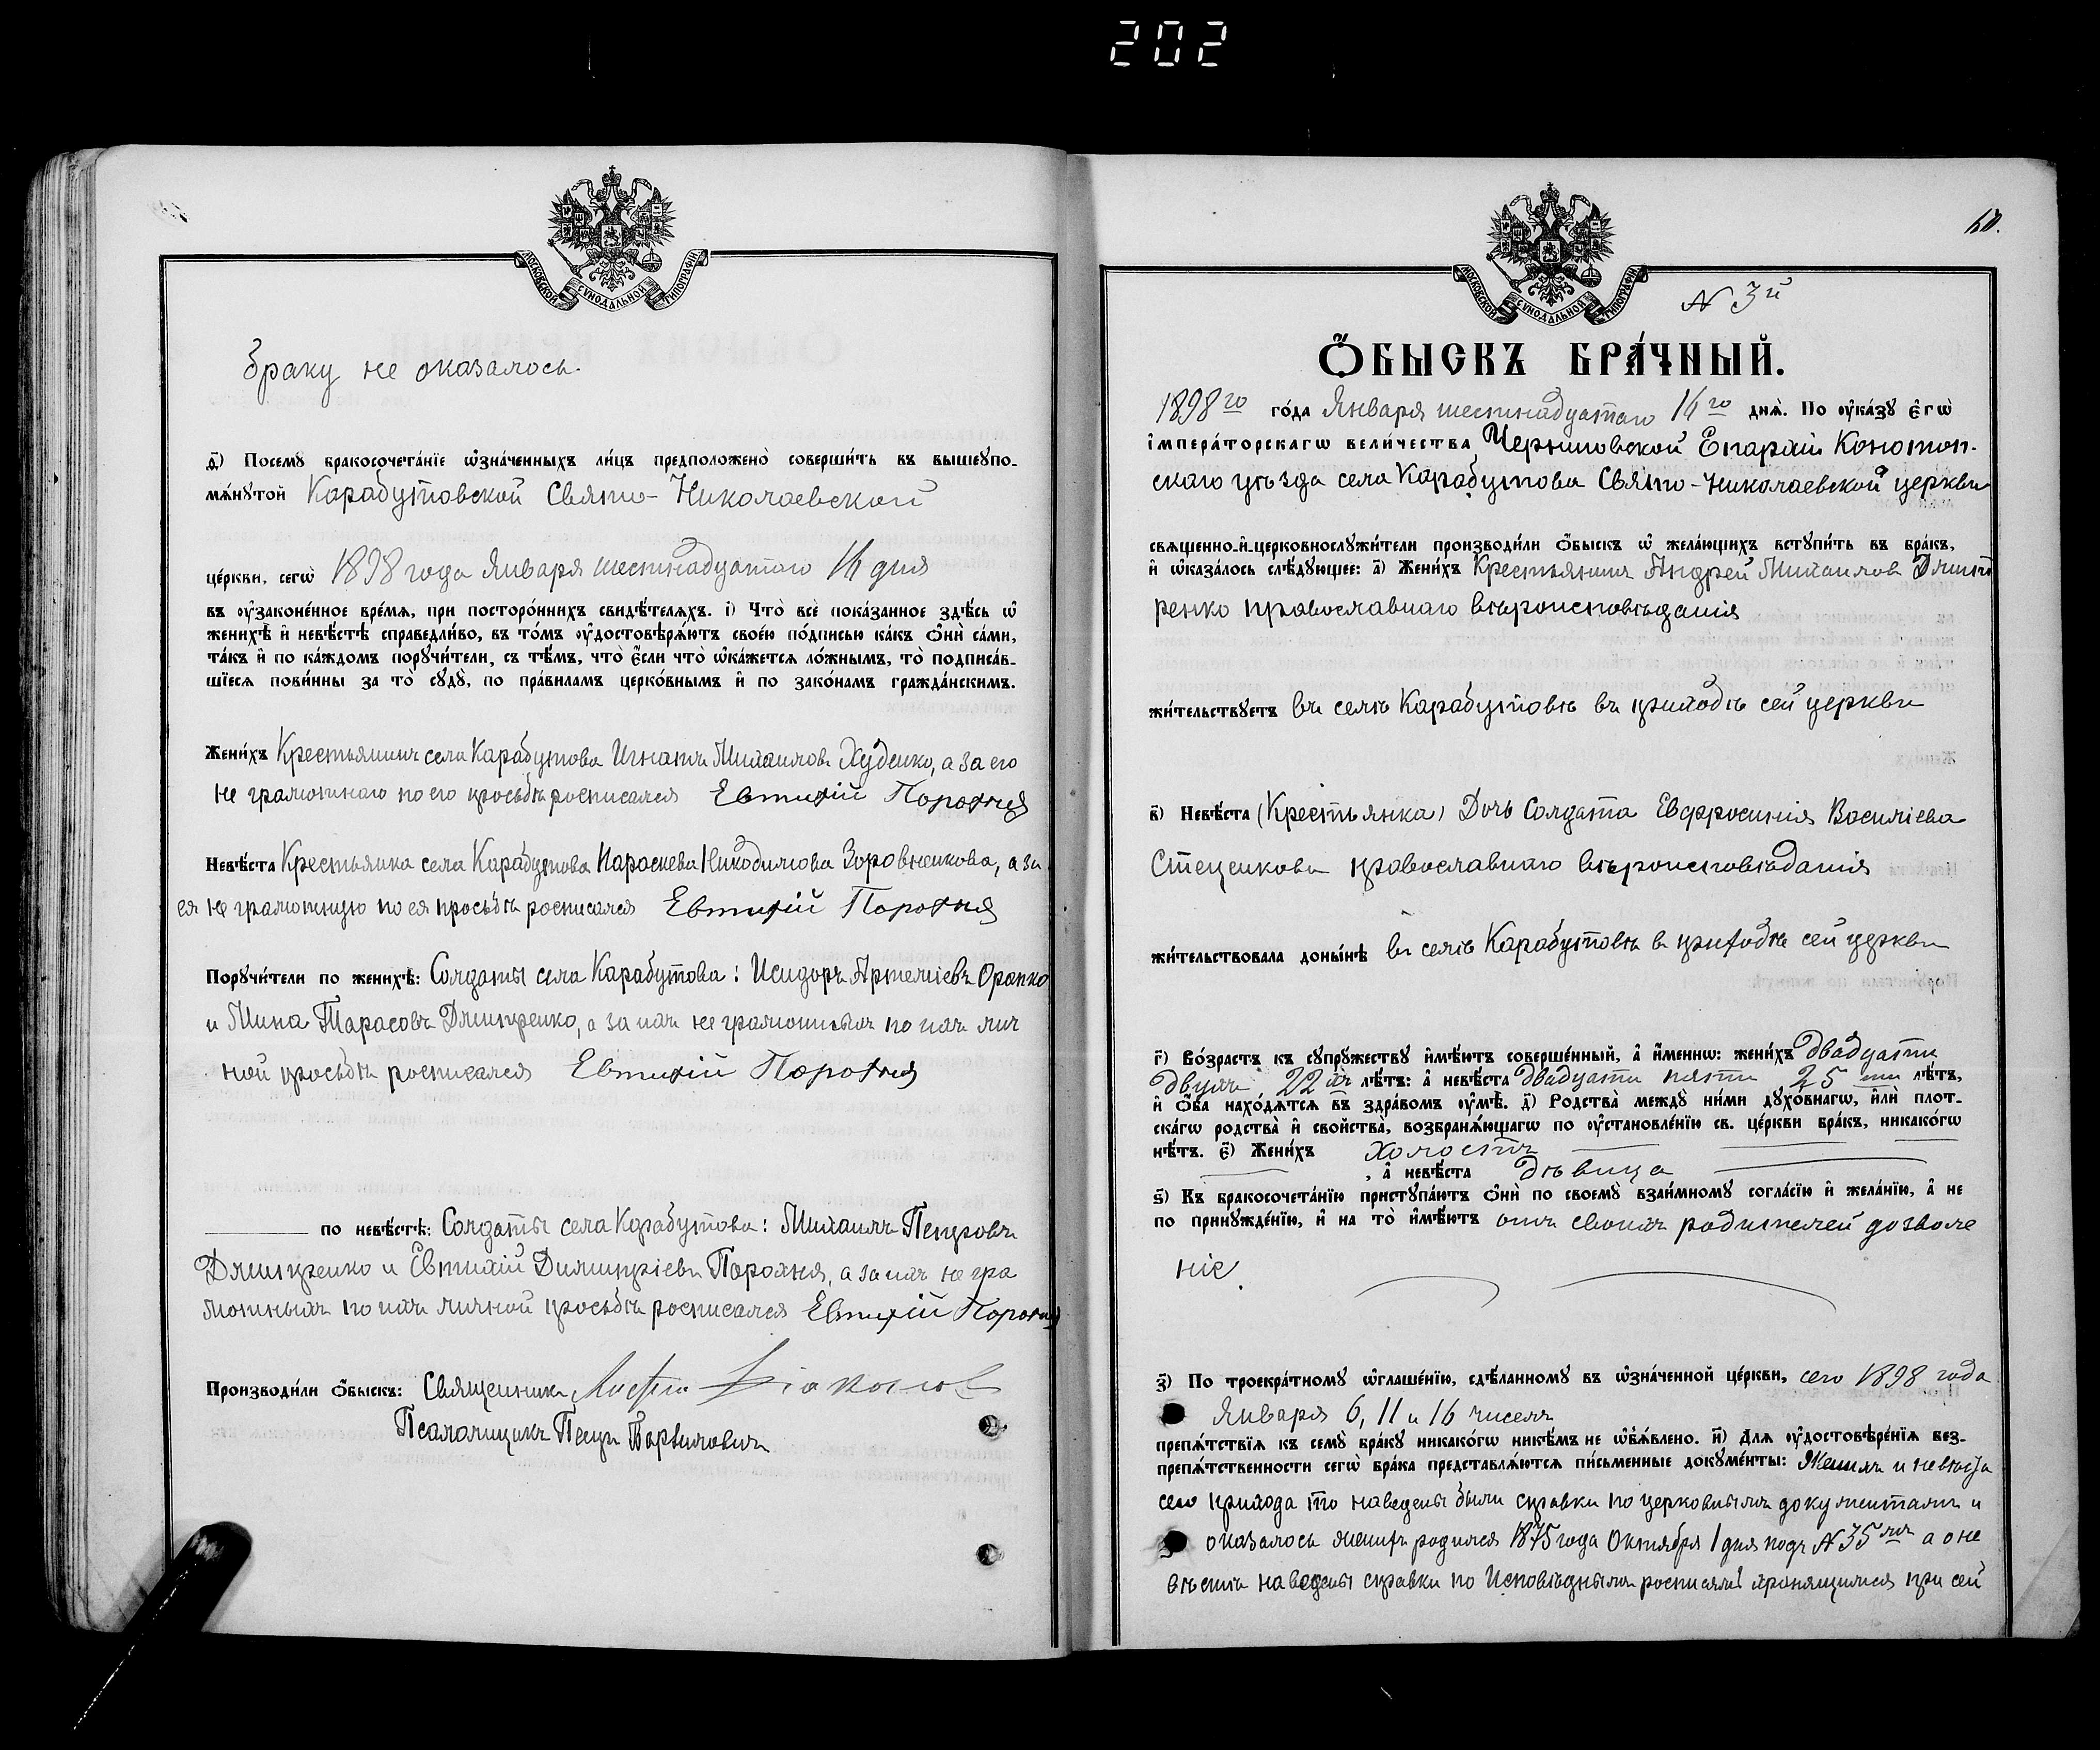 202
МОСКОВСКОЙ СѴНОДАЛЬНОЙ ТИПОГРАФІИ
браку не оказалось.
д҃) Посемꙋ бракосочета́нїе ѡ҆зна́ченныхъ ли́цъ предположено̀ соверши́ть въ вышеꙋпо-
мѧ́нꙋтой Карабутовской Свято-Николаевской
це́ркви, сегѡ̀ 1898 года Января шестнадцатаго 16 дня
въ ᲂу҆зако́ненное вре́мѧ, при посторо́ннихъ свидѣ́телѧхъ. і҃) Что̀ всѐ пока́занное здѣ́сь ѡ҆
женихѣ̀ и҆ невѣ́стѣ справедли́во, въ то́мъ ᲂу҆достовѣрѧ́ютъ свое́ю по́дписью ка́къ ѻ҆нѝ са́ми,
та́къ и҆ по ка́ждомъ порꙋчи́тели, съ тѣ́мъ, что̀ є҆́сли что̀ ѡ҆ка́жетсѧ ло́жнымъ, то̀ подписа́в-
шїесѧ пови́нны за то̀ сꙋдꙋ̀, по пра́виламъ церко́внымъ и҆ по зако́намъ гражда́нскимъ.
Жени́хъ Крестьянинъ села Карабутова Игнатъ Михаиловъ Худенко, а за его
не грамотнаго по его просьбѣ росписался Евтихій Порохня
Невѣ́ста Крестьянка села Карабутова Параскева Никодимова Боровненкова, а за
ея не грамотную по ея просьбѣ росписался Евтихій Порохня
Порꙋчи́тели по женихѣ̀: Солдаты села Карабутова: Исидоръ Артеміевъ
и Мина Тарасовъ Дмитренко, а за ихъ не грамотныхъ по ихъ лич
ной просьбѣ росписался Евтихій Порохня
по невѣ́стѣ: Солдаты села Карабутова: Михаилъ Петровъ
Дмитренко и Евтихій Димитріевъ Порохня, а за ихъ не гра
мотныхъ по ихъ личной просьбѣ росписался Евтихій Порохня
Производи́ли ѻ҆́быскъ: Священникъ Діаконовъ
Псаломщикъ Петръ
60.
МОСКОВСКОЙ СѴНОДАЛЬНОЙ ТИПОГРАФІИ
N 3й
Ѻ҆́БЫСКЪ БРА́ЧНЫЙ.
1898го го́да Января шестнадцатаго 16го днѧ̀. По ᲂу҆ка́зꙋ є҆гѡ̀
і҆мпера́торскагѡ вели́чества Черниговской Епархіи Конотоп-
скаго уѣзда села Карабутова Свято-Николаевской церкви
свѧще́нно-и҆-церковнослꙋжи́тели производи́ли ѻ҆́быскъ ѡ҆ жела́ющихъ встꙋпи́ть въ бра́къ,
и҆ ѡ҆каза́лось слѣ́дꙋющее: а҃) Жени́хъ Крестьянинъ Андрей Михаиловъ Дмит
ренко православнаго вѣроисповѣданія
жи́тельствꙋетъ въ селѣ Карабутовѣ въ приходѣ сей церкви
в҃) Невѣ́ста (Крестьянка) Дочь Солдата Евфросинія Василіева
Стеценкова православнаго вѣроисповѣданія
жи́тельствовала доны́нѣ въ селѣ Карабутовѣ въ приходѣ сей церкви
г҃) Во́зрастъ къ сꙋпрꙋ́жествꙋ и҆мѣ́ютъ соверше́нный, а҆ и҆́меннѡ: жени́хъ двадцати
двухъ 22хъ лѣ́тъ: а҆ невѣ́ста двадцати пяти 25ти лѣ́тъ,
и҆ ѻ҆́ба нахо́дѧтсѧ въ здра́вомъ ᲂу҆мѣ̀. д҃) Родства̀ междꙋ̀ ни́ми дꙋхо́внагѡ, и҆лѝ плот-
ска́гѡ родства̀ и҆ сво́йства̀, возбранѧ́ющагѡ по ᲂу҆становле́нїю св. це́ркви бра́къ, никако́гѡ
нѣ́тъ. є҃) Жени́хъ холостъ
, а҆ невѣ́ста дѣвица
ѕ҃) Къ бракосочета́нїю пристꙋпа́ютъ ѻ҆нѝ по своемꙋ̀ взаи́мномꙋ согла́сїю и҆ жела́нїю, а҆ не
по принꙋжде́нїю, и҆ на то̀ и҆мѣ́ютъ отъ своихъ родителей дозволе
ніе
з҃) По троекра́тномꙋ ѡ҆глаше́нїю, сдѣ́ланномꙋ въ ѡ҆зна́ченной це́ркви, сего 1898 года
Января 6, 11 и 16 чиселъ
препѧ́тствїѧ къ семꙋ̀ бра́кꙋ никако́гѡ никѣ́мъ не ѡ҆б̾ѧ́влено. и҃) Длѧ ᲂу҆достовѣре́нїѧ без-
препѧ́тственности сегѡ̀ бра́ка представлѧ́ютсѧ пи́сьменные докꙋме́нты: Женихъ и невѣста
сего прихода то наведены были справки по церковнымъ документамъ и
оказалось женихъ родился 1875 года Октября 1 дня подъ N 35мъ а о не
вѣстѣ наведены справки по Исповѣднымъ росписямъ хранящимся при сей